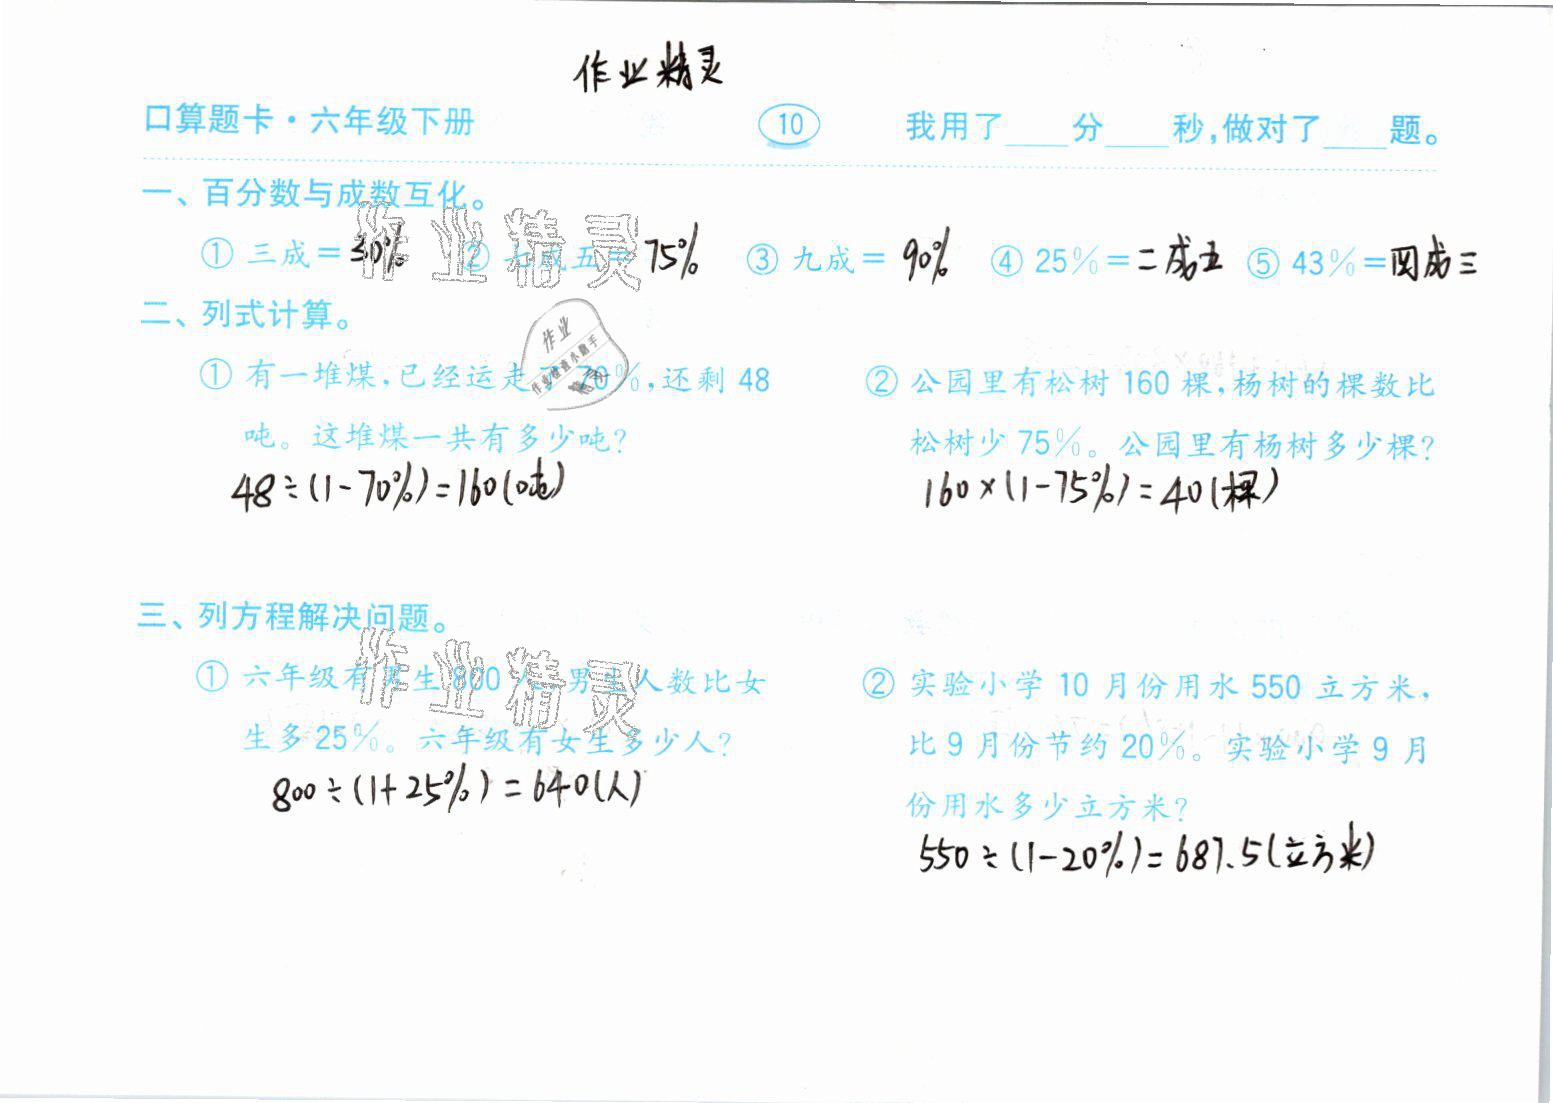 作业精灵
口算题卡·六年级下册 10 我用了____分____秒,做对了____题。
一、百分数与成数互化。
① 三成=30% ② 七成五=75% ③ 九成=90% ④ 25%=二成五 ⑤ 43%=四成三
作业精灵
二、列式计算。
① 有一堆煤,已经运走了70%,还剩 48
吨。这堆煤一共有多少吨?
48÷(1-70%)=160(吨)
② 公园里有松树 160 棵,杨树的棵数比
松树少 75%。公园里有杨树多少棵?
160×(1-75%)=40(棵)
作业
作业检查小助手
三、列方程解决问题。
① 六年级有男生 800 人,男生人数比女
生多 25%。六年级有女生多少人?
800÷(1+25%)=640(人)
作业精灵
② 实验小学 10 月份用水 550 立方米,
比 9 月份节约 20%。实验小学 9 月
份用水多少立方米?
550÷(1-20%)=687.5(立方米)